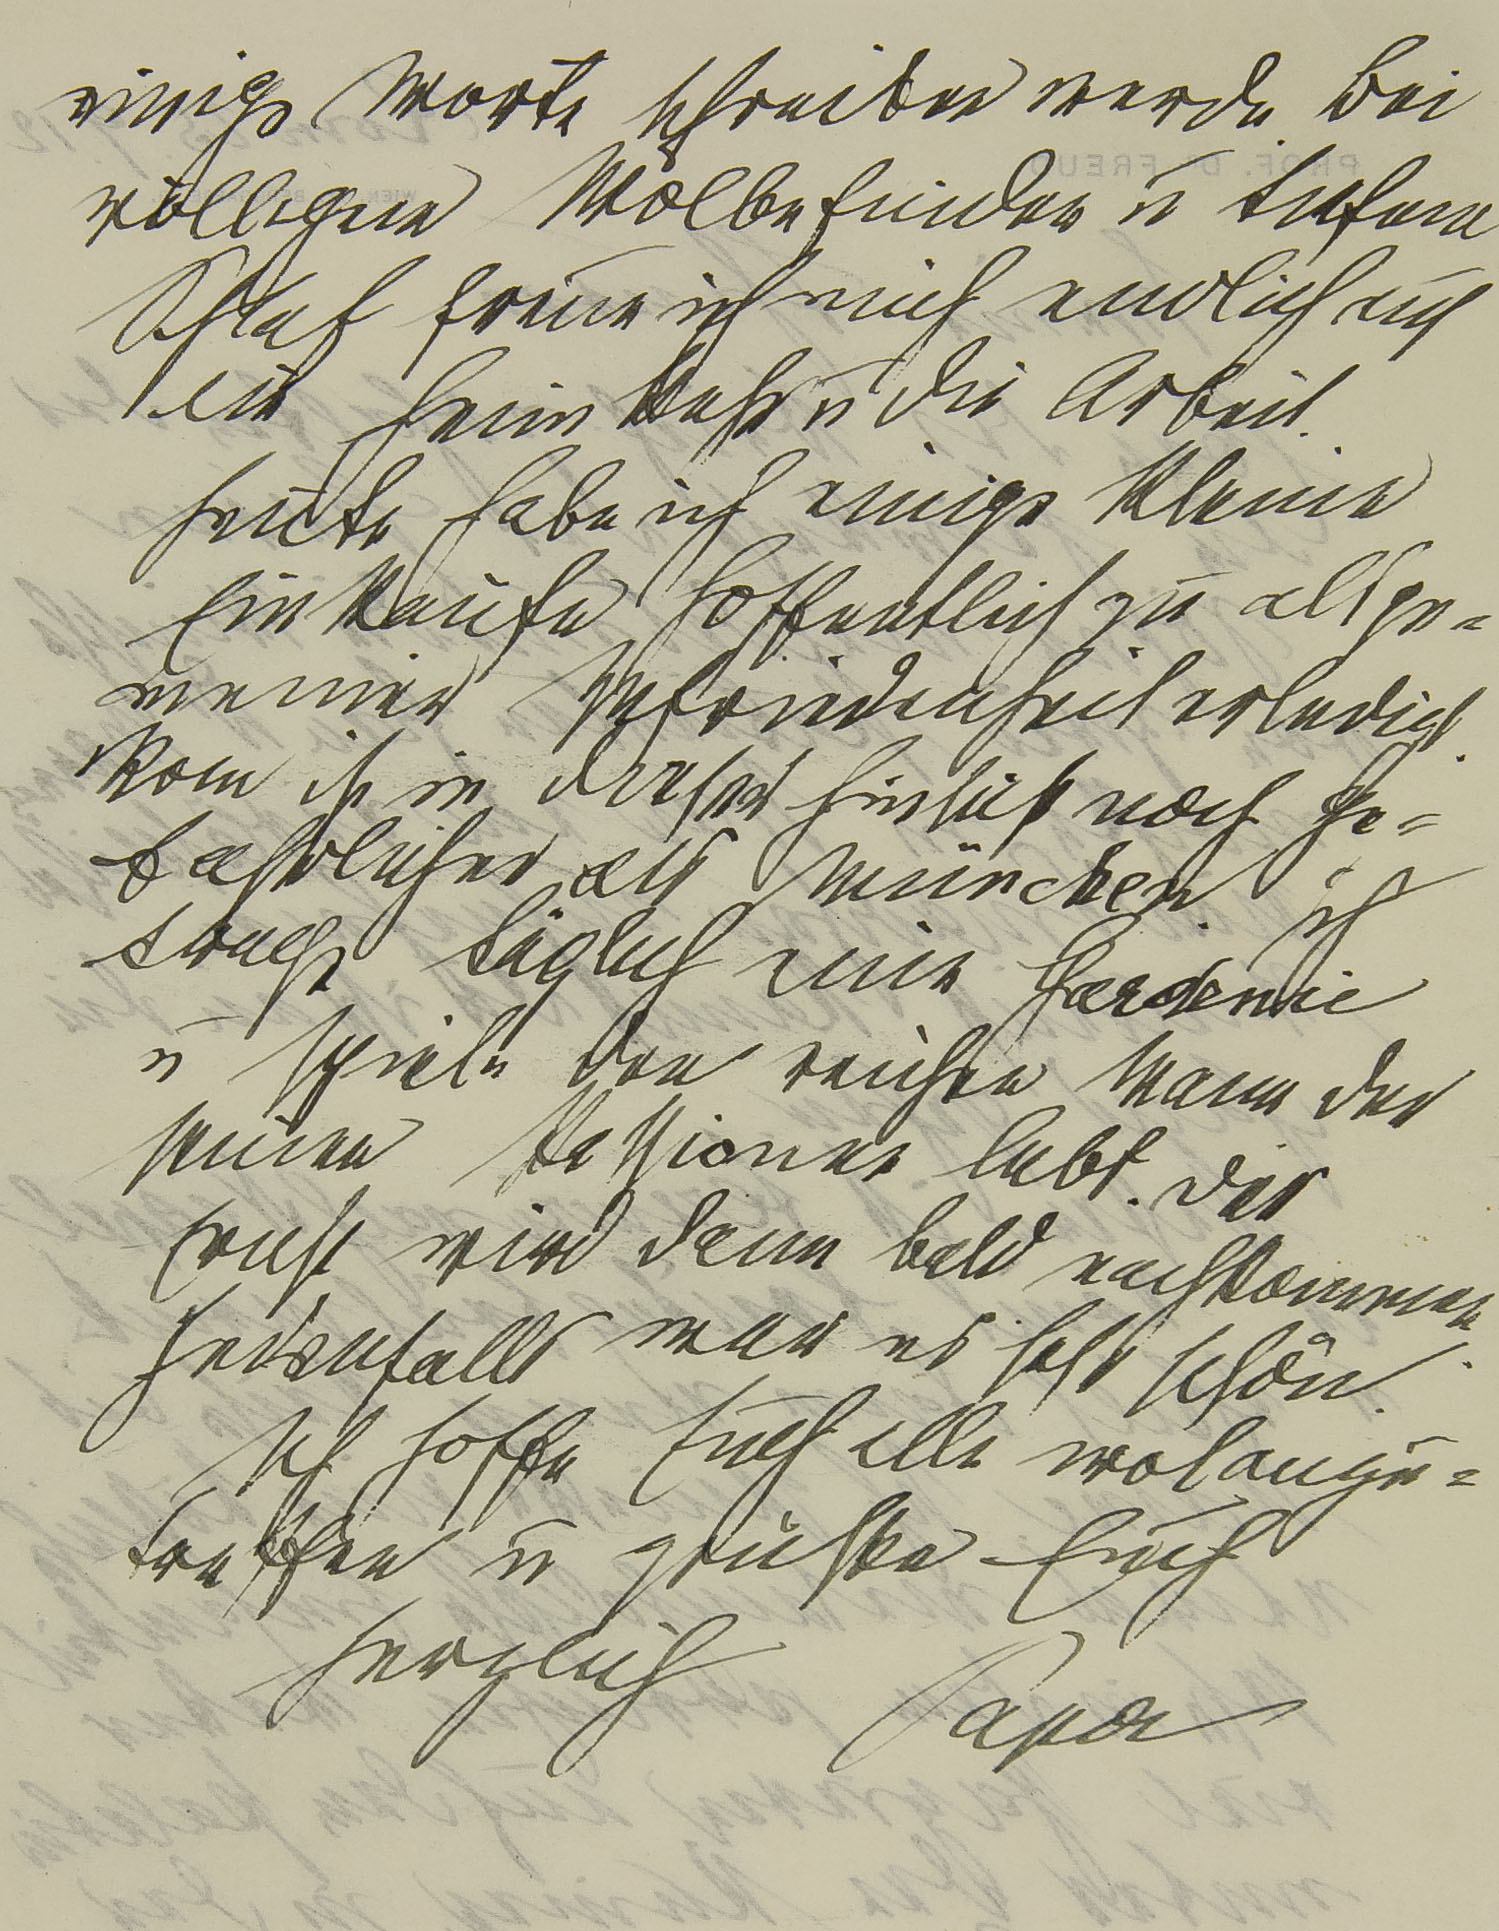 einige Worte schreiben werde. Bei
völligem Wolbefinden u tiefem
Schlaf freue ich mich endlich auf
die Heimkehr u die Arbeit.
Heute habe ich einige kleine
Einkäufe hoffentlich zu allge=
meiner Zufriedenheit erledigt.
Rom ist in dieser Hinsicht noch ge=
fährlicher als München. Ich
trage täglich eine Gardenie
u spiele den reichen Mann der
seinen Passionen lebt. Der
Ernst wird dann bald nachkommen.
Jedenfalls war es sehr schön.
Ich hoffe Euch alle wol anzu=
treffen u grüße Euch
herzlich
Papa
PROF. Dr. FREUD